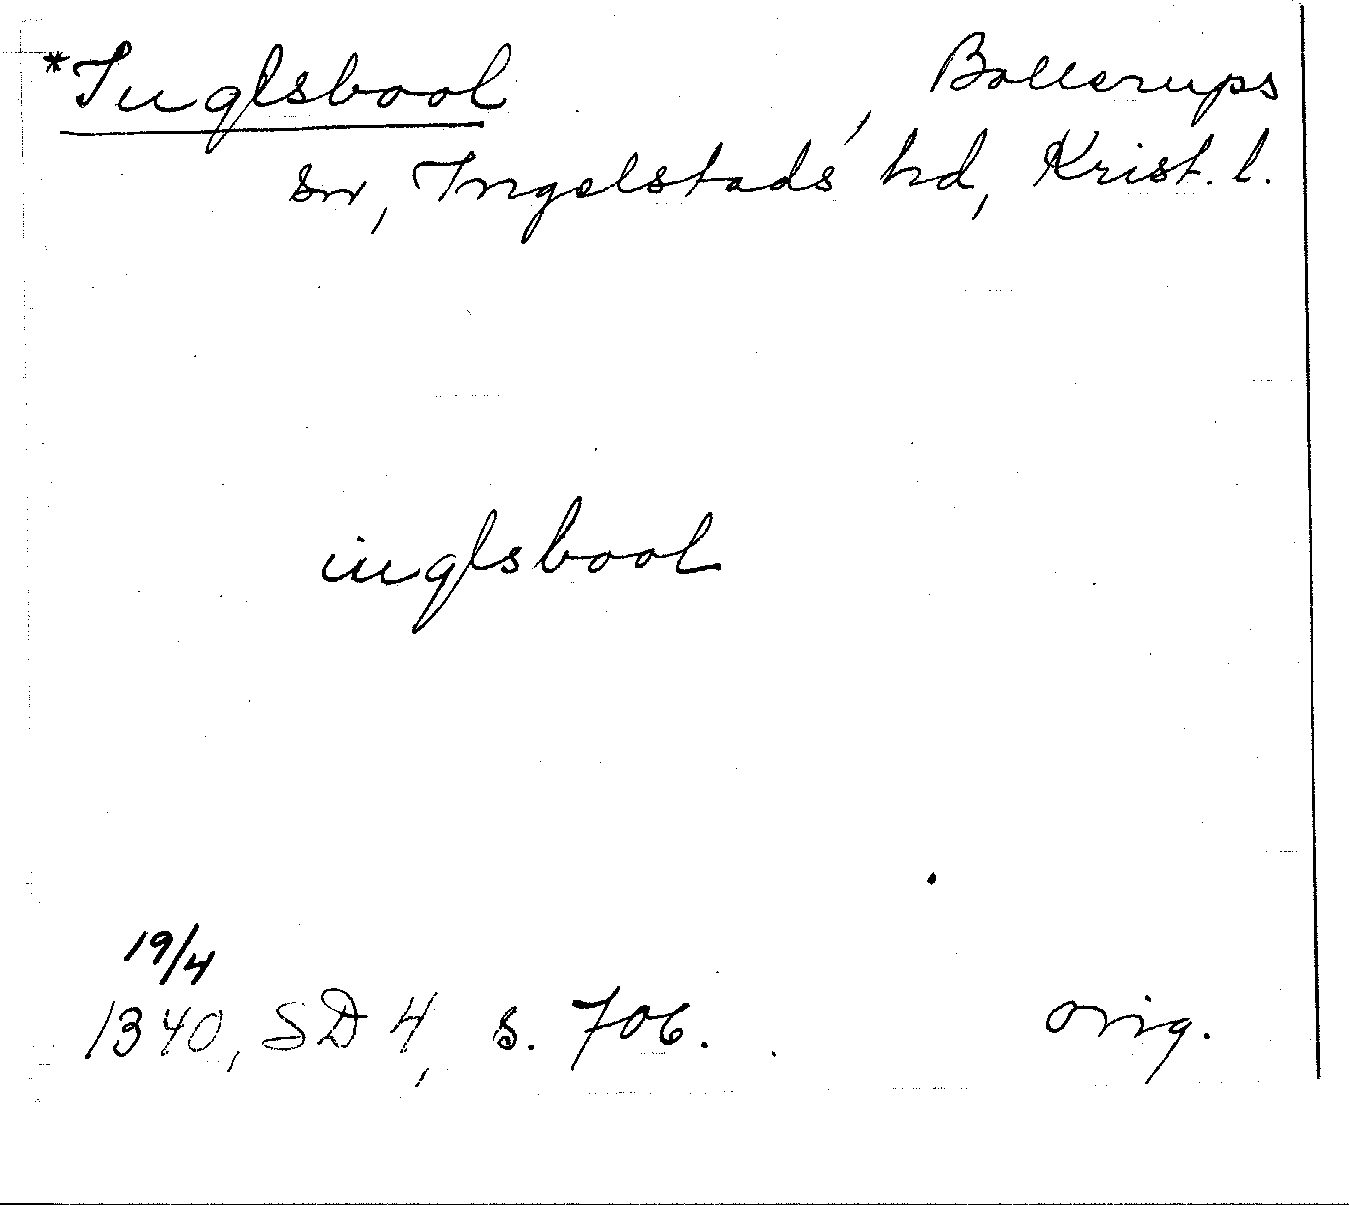 *Iuglsbool Bollerups
sn, Ingelstads hd, Krist. l.
iuglsbool
19/4
1340, SD 4, s. 706. orig.